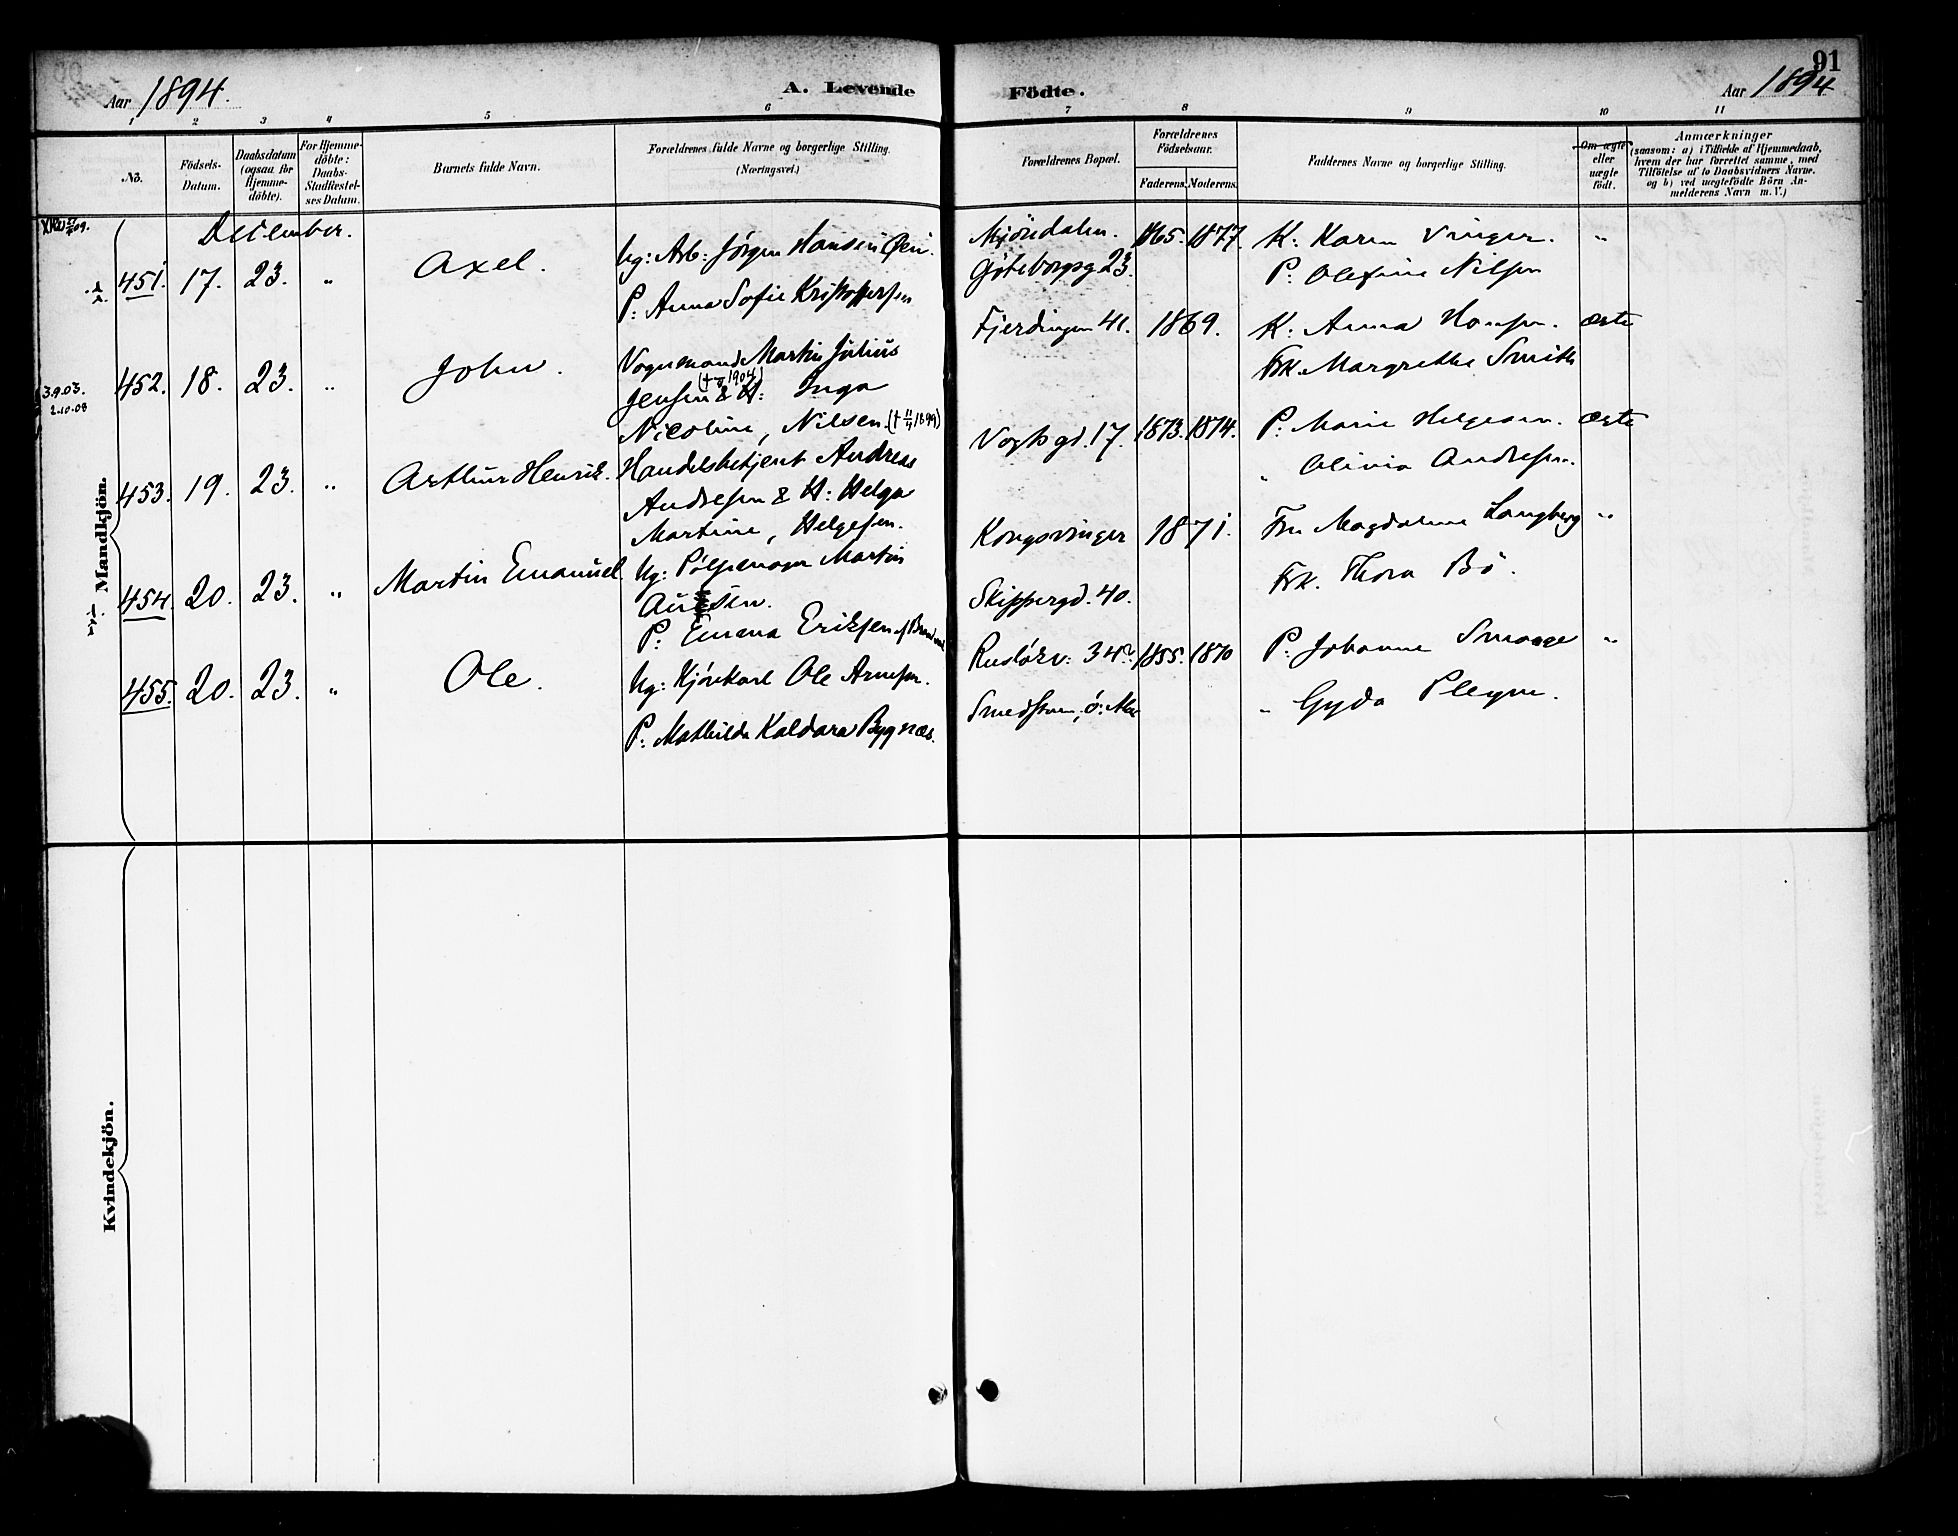 91
Aar 1894.
A. Levende Födte.
Aar 1894
1 2 3 4 5 6 7 8 9 10 11
No.
Födsels-Datum.
Daabsdatum (ogsaa for Hjemme-döbte).
For Hjemme-döbte: Daabs-Stadfæstel-ses Datum.
Barnets fulde Navn.
Forældrenes fulde Navne og borgerlige Stilling.
(Næringsvei.)
Forældrenes Bopæl.
Forældrenes Födselsaar.
Faderens. Moderens.
Faddernes Navne og borgerlige Stilling.
Om ægte eller uægte födt.
Anmærkninger
(saasom: a) i Tilfælde af Hjemmedaab,
hvem der har forrettet samme, med
Tilföielse af to Daabsvidners Navne.
og b) ved uægtefödte Börn An-
melderens Navn m. V.)
Mandkjön.
December.
451. 17. 23. " Axel.
Ug: Arb: Jørgen Hansen Øen.
P: Anna Sofie Kristoffersen
Mjöndalen. 1865. 1877.
Göteborgsg 23.
K: Karen Vinger. "
P: Olefine Nilsen
3.9.03.
2.10.08
452. 18. 23. " John.
Vognmand Martin Julius
Jensen & H: Inga
Nicoline, Nilsen.
Fjerdingen 41. 1869.
K: Anna Hansen. ægte
Frk. Margrethe Smith
453. 19. 23. " Arthur Henrik.
Handelsbetjent Andreas
Andresen & H: Helga
Martine, Helgesen.
Vogtsgd. 17. 1873. 1874.
P: Marie Helgesen. ægte
" Olivia Andresen.
454. 20. 23. " Martin Emanuel.
Ug: Pölsemager Martin
P: Emma Eriksen
Kongsvinger 1871.
Skippergd. 40.
Fru Magdalene Langberg "
Frk. Thora Bö.
455. 20. 23. " Ole.
Ug: Kjörekarl Ole Arnesen.
P: Mathilde Kaldara Bygnæs.
Ruslökv: 34 1855. 1870
P: Johanne "
" Gyda
Kvindekjön.